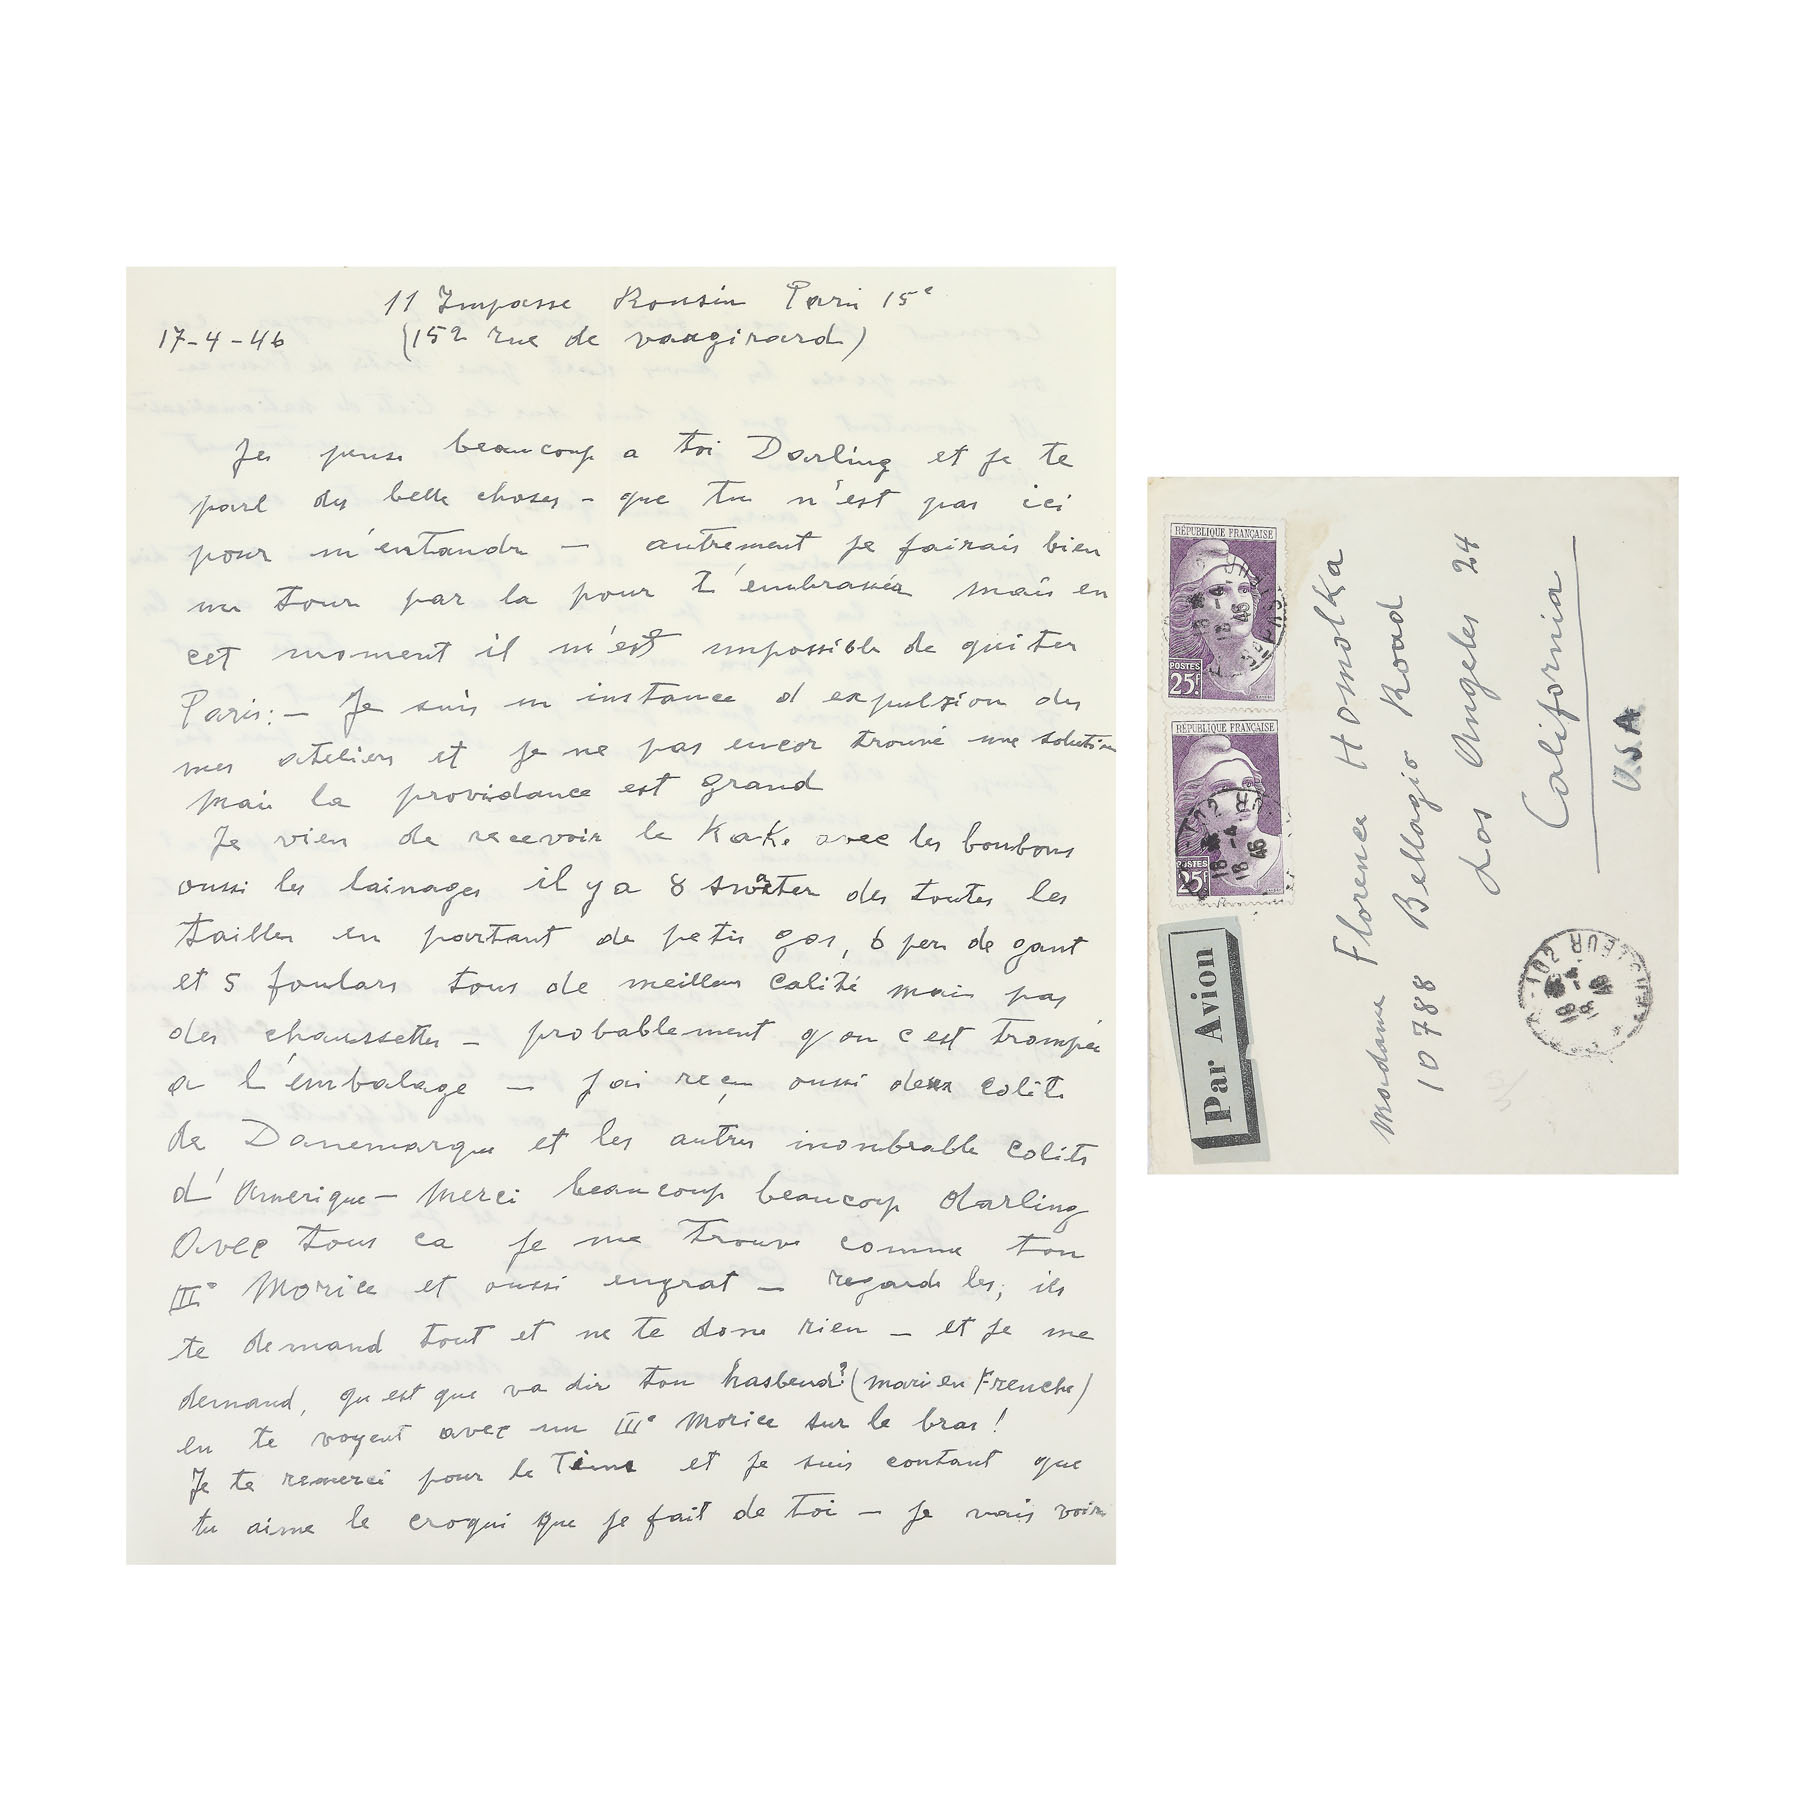 11 Impasse Ronsin Paris 15e
17-4-46 (152 rue de vaugirard)
Je pense beaucoup a toi Darling et je te
parl des belle choses - que tu n'est pas ici
pour m'entandre - autrement je fairais bien
un tour par la pour t'embrasser mais en
cet moment il m'est impossible de quiter
Paris: - Je suis en instance d expulsion des
mes ateliers et je ne pas encor trouvé une solution
mais la providance est grand
Je vien de recevoir le Kake avec les bonbons
aussi les lainages il y a 8 swater des toutes les
tailles en partant de petis gas, 6 per de gant
et 5 foulars tous de meilleur calité mais pas
des chaussettes - probablement q'on c'est trompée
a l'embalage - j'ai reçu aussi deux colits
de Danemarque et les autres inonbrable colits
d'Amerique - Merci beaucoup beaucoup darling
Avec tous ca je me trouve comme ton
III° Morice et aussi engrat - regarde les, ils
te demand tout et ne te done rien - et je me
demand, qu est que va dir ton hasbend? (mari en Frenche)
en te voyent avec un III° Morice sur le bras!
Je te remerci pour le Time et je suis contant que
tu aime le croqui que je fait de toi - je vais voir
RÉPUBLIQUE FRANÇAISE
POSTES
25f
18 -4
46
RÉPUBLIQUE FRANÇAISE
POSTES
25f
18 -4
46
Par Avion
Madame Florence Homolka
10788 Bellagio Road
Los Angeles 24
California
USA